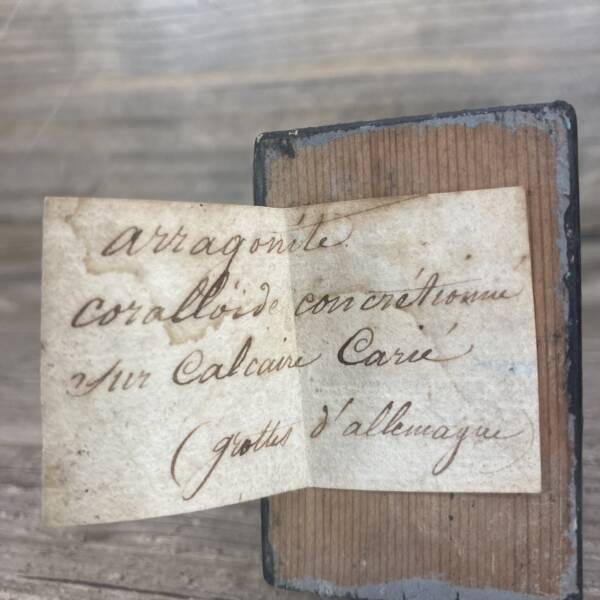 arragonite.
coralloïde concrétionné
sur Calcaire Carié
(grottes d'allemagne)